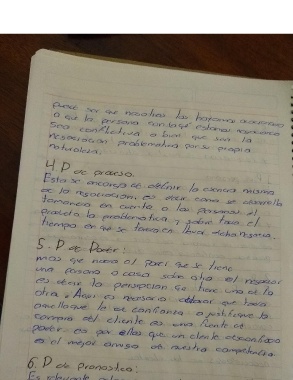 puede ser que nosotros los hagamos
o que la persona con la que estamos negociando
sea conflictiva o bien que sea la
negociación problematica por su propia
naturaleza.
4. P de proceso.
Esta se encarga de definir la esencia misma
de la negociación, es decir como se desarrolla
tomando en cuenta a las personas, el
producto la problematica, y sobre todo el
tiempo en que se tomara en llevar dicha
5. P de Poder:
mas que nada el poder que se tiene
una persona o cosa sobre otra el negociar
es estar la percepción que tiene una de la
otra. Aqui es necesario que todo
aquello que le de confianza o justifique la
compra del cliente es una fuente de
poder es por ello que un cliente desconfiado
es el mejor amigo de nuestra competencia
6. P de pronostico:
Es relevante